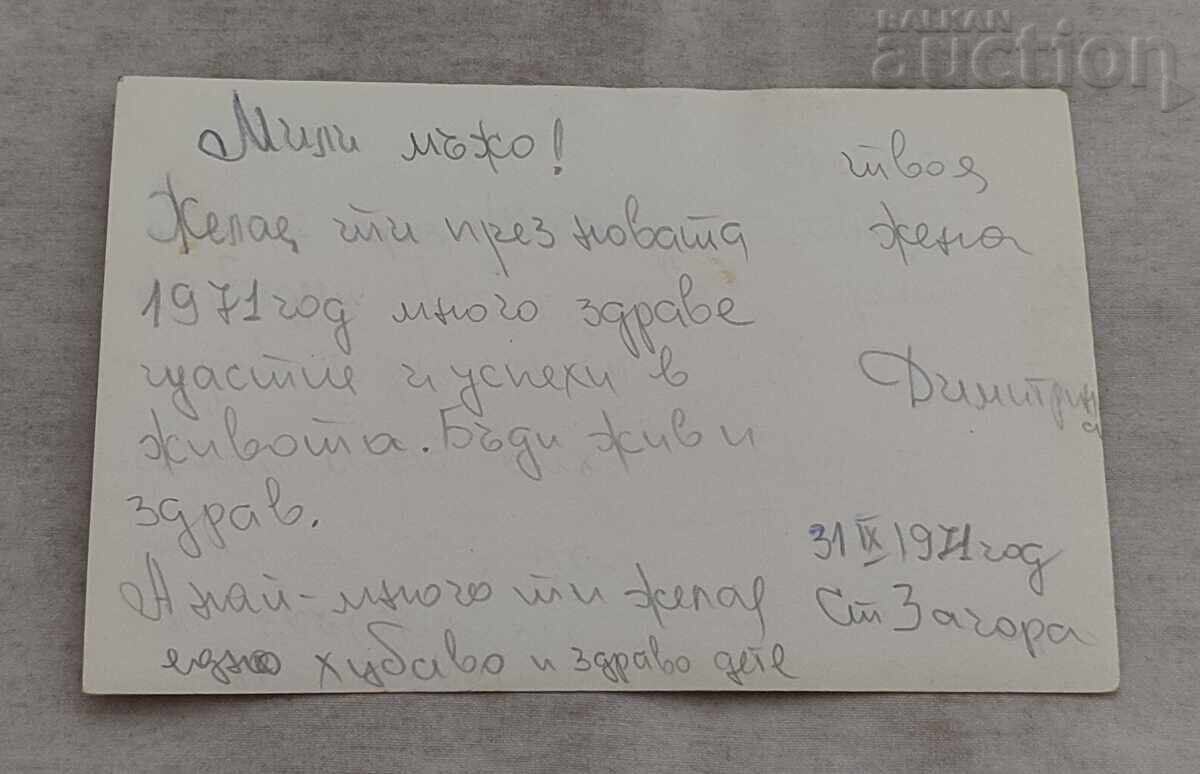 BALKAN
auction
Мили мъжо!
Желая ти през новата
1971 год много здраве
щастие и успехи в
живота. Бъди жив и
здрав.
А най-много ти желая
едно хубаво и здраво дете
твоя
жена
Димитрина
31 IX 1971 год
Ст Загора